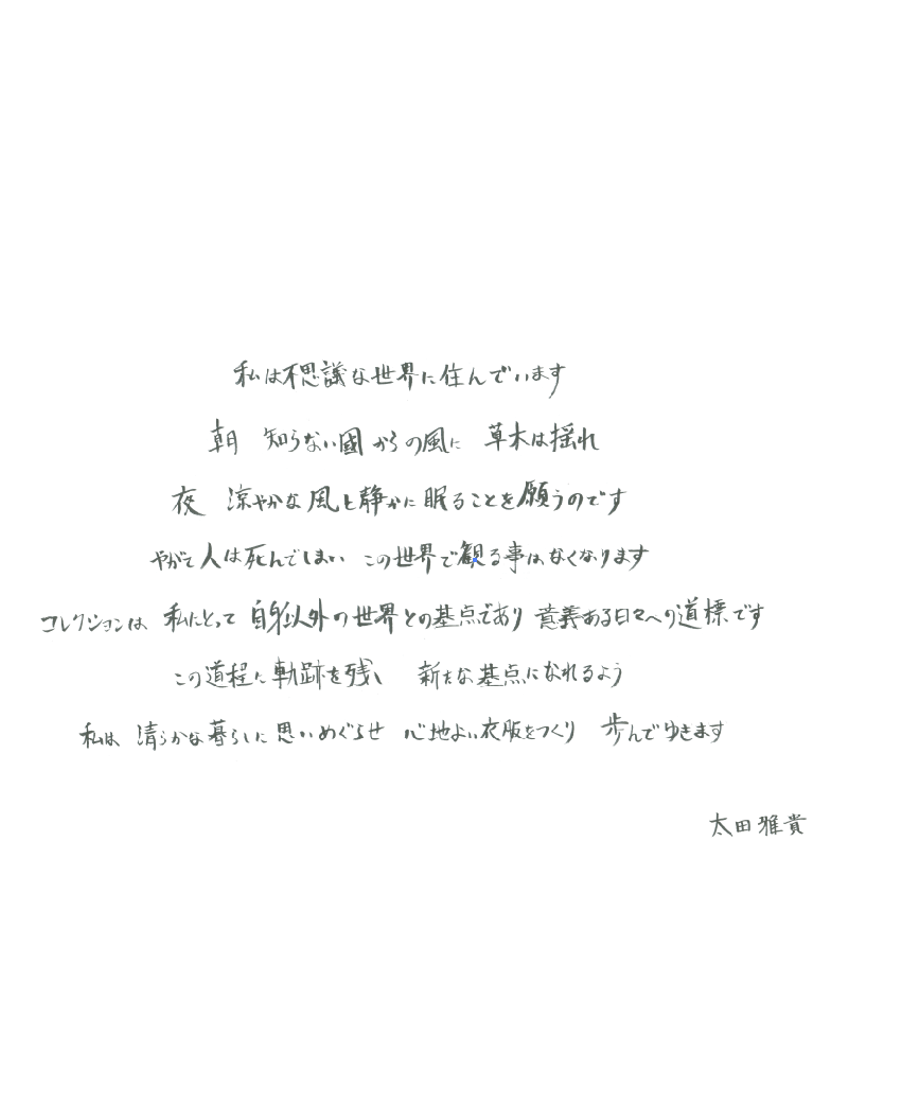 私は不思議な世界に住んでいます
朝　知らない國からの風に　草木は揺れ
夜　涼やかな風と静かに眠ることを願うのです
やがて人は死んでしまい　この世界で観る事はなくなります
コレクションは　私にとって　自身以外の世界との基点であり　意義ある日々への道標です
この道程に軌跡を残し　新たな基点になれるよう
私は　清らかな暮らしに思いめぐらせ　心地よい衣服をつくり　歩んでゆきます
太田雅貴